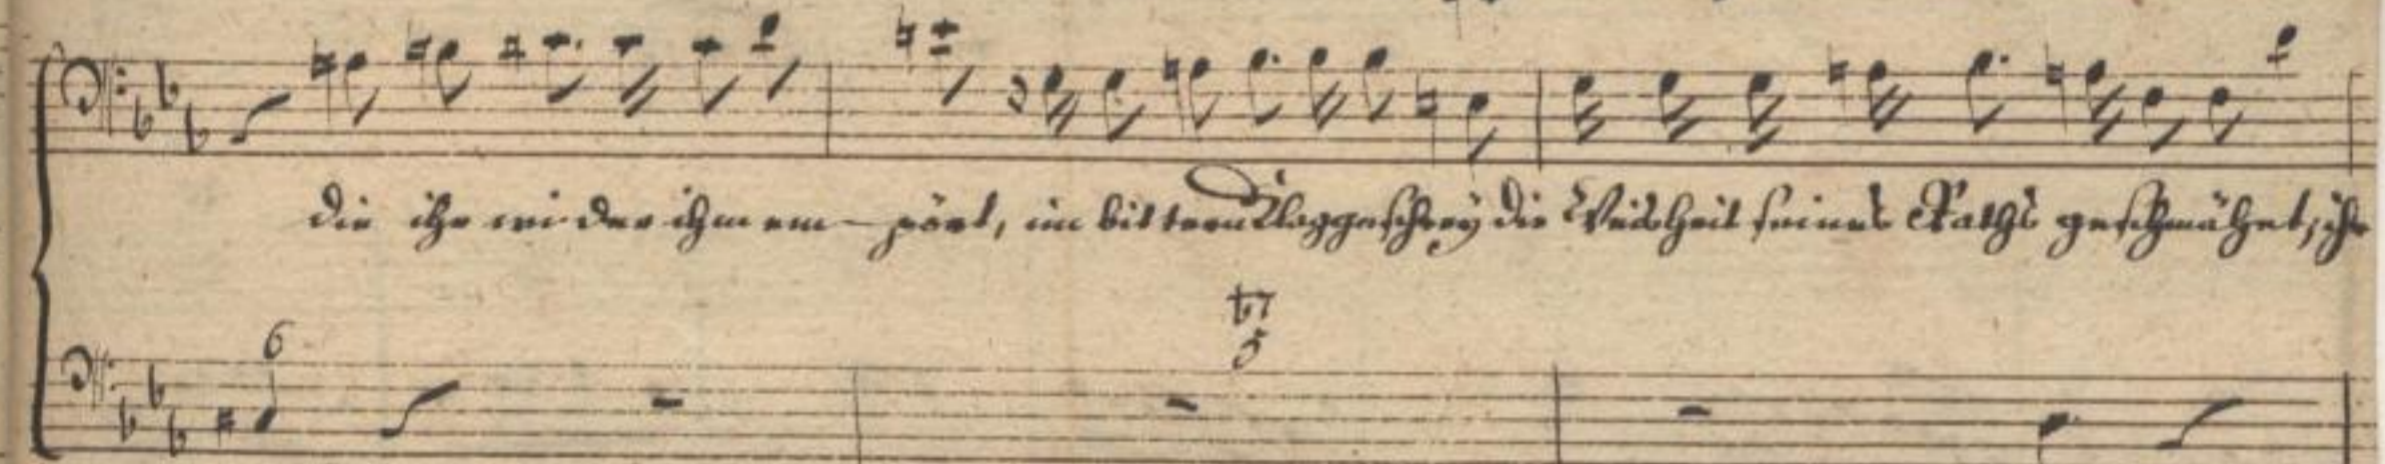 die ihr wider ihm em-pört, im bittern Klaggeschrey die Weisheit seines Raths geschmähet; ihr
6 ♮7
5